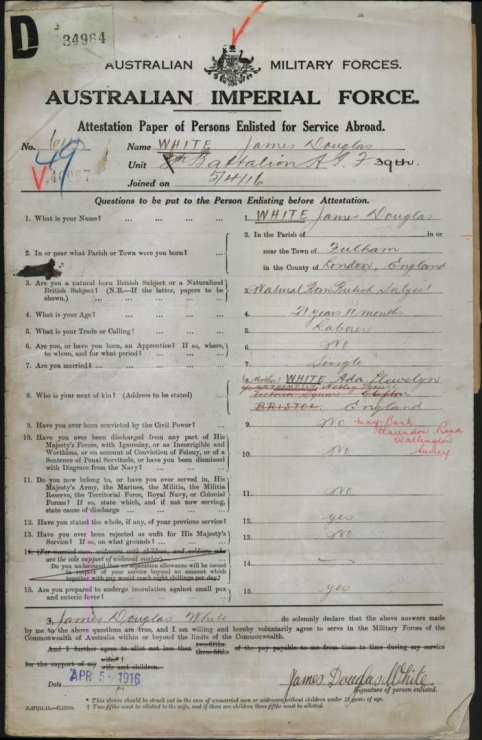 D
34964
AUSTRALIAN MILITARY FORCES.
AUSTRALIAN IMPERIAL FORCE.
Attestation Paper of Persons Enlisted for Service Abroad.
No. Name WHITE James Douglas
49 Unit Battalion A I F 39th.
V. Joined on 5/4/16
Questions to be put to the Person Enlisting before Attestation.
1. What is your Name? ... ... ... 1. WHITE James Douglas
2. In or near what Parish or Town were you born? ... 2. In the Parish of in or
near the Town of Fulham
in the County of London, England
3. Are you a natural born British Subject or a Naturalized
British Subject? (N.B.—If the latter, papers to be
shown.) ... ... ... 3. Natural Born British Subject
4. What is your Age? ... ... ... 4. 21 years 11 months
5. What is your Trade or Calling? ... ... 5. Labourer
6. Are you, or have you been, an Apprentice? If so, where,
to whom, and for what period? ... ... 6. No
7. Are you married? ... ... ... 7. Single
8. Who is your next of kin? (Address to be stated) ... 8. Mother WHITE Ada Llewelyn
Victoria Square Clifton
BRISTOL. England
9. Have you ever been convicted by the Civil Power? ... 9. No
May Bank
Clarendon Road
Wallington
Surrey
10. Have you ever been discharged from any part of His
Majesty's Forces, with Ignominy, or as Incorrigible and
Worthless, or on account of Conviction of Felony, or of a
Sentence of Penal Servitude, or have you been dismissed
with Disgrace from the Navy? ... ... 10. No
11. Do you now belong to, or have you ever served in, His
Majesty's Army, the Marines, the Militia, the Militia
Reserve, the Territorial Force, Royal Navy, or Colonial
Forces? If so, state which, and if not now serving,
state cause of discharge ... ... 11. No
12. Have you stated the whole, if any, of your previous service? 12. yes
13. Have you ever been rejected as unfit for His Majesty's
Service? If so, on what grounds? ... ... 13. No
14. (For married men, widowers with children, and soldiers who
are the sole support of widowed mother)
Do you understand that no separation allowance will be issued
in respect of your service beyond an amount which
together with pay would reach eight shillings per day? 14. —
15. Are you prepared to undergo inoculation against small pox
and enteric fever? ... ... ... 15. yes
I, James Douglas White do solemnly declare that the above answers made
by me to the above questions are true, and I am willing and hereby voluntarily agree to serve in the Military Forces of the
Commonwealth of Australia within or beyond the limits of the Commonwealth.
And I further agree to allot not less than two-fifths three-fifths of the pay payable to me from time to time during my service
for the support of my wife* †
wife and children.
Date APR 5 - 1916 James Douglas White
Signature of person enlisted.
* This clause should be struck out in the case of unmarried men or widowers without children under 18 years of age.
† Two-fifths must be allotted to the wife, and if there are children three-fifths must be allotted.